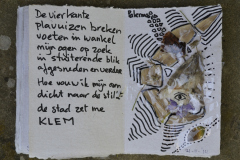 De vierkante
plavuizen breken
voeten in wankel
mijn ogen op zoek
in stotterende blik
afgesneden en
Hoe wu ik mijn
dicht naar de
de stad zet me
KLEM
Polemado